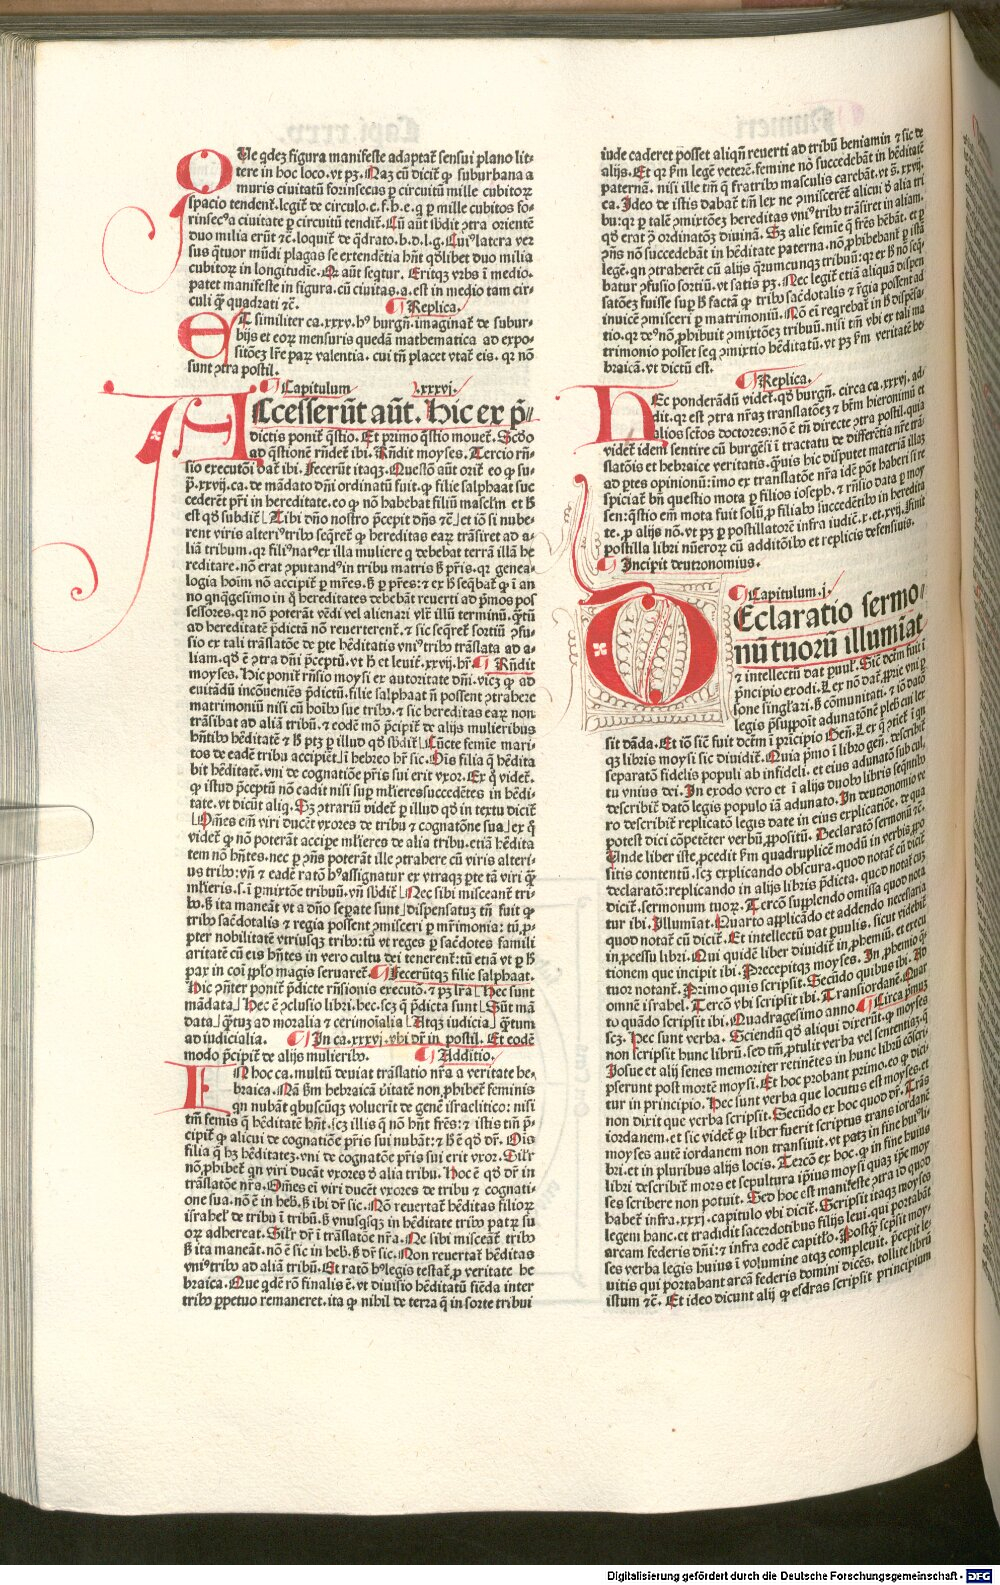 Que qdez figura manifeste adaptat̃ sensui plano lit-
tere in hoc loco.vt pz. Naz cũ dicit̃ ꝙ suburbana a
muris ciuitatũ forinsecus ꝑ circuitũ mille cubitoꝝ
spacio tendent.legit̃ de circulo.c.f.h.e.q ꝑ mille cubitos fo-
rinsecꝰa ciuitate ꝑ circuitũ tendit̃. Cũ aũt sb̃dit ꝯtra orientẽ
duo milia erũt ⁊c̃.loquit̃ de q̃drato.b.d.l.g. Cuiꝰlatera ver
sus q̃tuor mũdi plagas se extendẽtia hñt qd̃libet duo milia
cubitoꝝ in longitudĩe. Qr aũt seq̃tur. Eritqz vrbs ĩ medio.
patet manifeste in figura.cũ ciuitas.a.est in medio tam cir-
culi q̃ꝫ quadrati ⁊c̃. ¶ Replica.
ET similiter ca.xxxv.hꝰ burgñ.imaginat̃ de subur-
bijs et eoꝝ mensuris quedã mathematica ad expo-
sitõez lr̃e paꝝ valentia.cui tñ placet vtat̃ eis.qꝛ nõ
sunt ꝯtra postil.
¶ Capitulum .xxxvj.
ACcesserũt aũt. Hic ex p̃-
dictis ponit̃ q̃stio. Et primo q̃stio mouet̃. Scđo
ad q̃stionẽ rñdet̃ ibi. Rñdit moyses. Tercio rñ-
sio executõi dat̃ ibi. Fecerũt itaqꝫ. Questiõ aũt orit̃ eo ꝙ su-
p̃.xxvij.ca.de mãdato dñi ordinatũ fuit.ꝙ filie salphaat suc
cederẽt pr̃i in hereditate.eo ꝙ nõ habebat filiũ mascl̃m et ß
est qđ subdit̃ Tibi dño nostro p̃cepit dñs ⁊c̃ et iõ si nube-
rent viris alteriꝰtribꝰ seq̃ret̃ ꝙ hereditas eaꝝ trãsiret ad a-
liã tribum.qꝛ filiꝰnatꝰex illa muliere q̃ debebat terrã illã he
reditare.nõ erat ꝯputandꝰin tribu matris ß pr̃is.qꝛ genea-
logia hoĩm nõ accipit̃ ꝑ mr̃es.ß ꝑ pr̃es:⁊ ex ß seq̃bat̃ ꝙ ĩ an
no qnq̃gesimo in q̃ hereditates debebãt reuerti ad p̃mos pos
sessores.qꝛ nõ poterãt vẽdi vel alienari vltͣ illũ terminũ.q̃tũ
ad hereditatẽ p̃dictã nõ reuerterent̃.⁊ sic seq̃ret̃ sortiũ ꝯfu-
sio ex tali trãslatõe de ꝑte hẽditatis vniꝰtribꝰ trãslata ad a-
liam.qđ ẽ ꝯtra dñi p̃ceptũ.vt ß et leuit̃.xxvij.hr̃. ¶ Rñdit
moyses. Hic ponit̃ rñsio moysi ex autoritate dñi.vicz ꝙ ad
euitãdũ incõueniẽs p̃dictũ.filie salphaat ñ possent ꝯtrahere
matrimoniũ nisi cũ hoĩbꝰ sue tribꝰ.⁊ sic hereditas eaꝝ non
trãsibat ad aliã tribũ.⁊ eodẽ mõ p̃cipit̃ de alijs mulieribus
hñtibꝰ hẽditatẽ ⁊ ß ptꝫ ꝑ illud qđ sb̃dit̃ Cũcte femĩe mari-
tos de eadẽ tribu accipiẽt ĩ hebreo hr̃ sic. Ois filia q̃ hẽdita
bit hẽditatẽ.vni de cognatiõe pr̃is sui erit vxor. Ex q̃ videt̃.
ꝙ istud p̃ceptũ nõ cadit nisi suꝑ ml̃ieres succedẽtes in hẽdi-
tate.vt dicũt aliq. Sꝫ ꝯtrariũ videt̃ ꝑ illud qđ in textu dicit̃
Om̃es em̃ viri ducẽt vxores de tribu ⁊ cognatõne sua ex q̃
videt̃ ꝙ nõ poterãt accipe ml̃ieres de alia tribu.etiã hẽdita
tem nõ hñtes.nec ꝑ ꝯñs poterãt ille ꝯtrahere cũ viris alteri-
us tribꝰ:vñ ⁊ eadẽ ratõ hꝰassignatur ex vtraqꝫ ꝑte tã viri q̃ꝫ
ml̃ieris.s.ĩ ꝑmixtõe tribuũ.vñ sb̃dit̃ Nec sibi misceant̃ tri-
bꝰ.ß ita maneãt vt a dño seꝑate sunt dispensatuꝫ tñ fuit ꝙ
tribꝰ sacẽdotalis ⁊ regia possent ꝯmisceri ꝑ mr̃imonia:tũ,ꝓ-
pter nobilitatẽ vtriusqꝫ tribꝰ:tũ vt reges ꝑ sacẽdotes famili
aritatẽ cũ eis hñtes in vero cultu dei tenerent̃:tũ etiã vt ꝑ ß
pax in coĩ ppl̃o magis seruaret̃. ¶ Feceruntqꝫ filie salphaat.
Hic ꝯñter ponit̃ p̃dicte rñsionis executo.⁊ pꝫ lr̃a Hec sunt
mãdata Hec ẽ ꝯclusio libri.hec.scꝫ q̃ p̃dicta sunt Sũt mã
data q̃tũꝫ ad moralia ⁊ cerimoialia Atqꝫ iudicia q̃tum
ad iudicialia. ¶ In ca.xxxvj.vbi dr̃ in postil. Et eodẽ
modo p̃cipit̃ de alijs mulieribꝰ. ¶ Additio.
IN hoc ca.multũ deuiat trãslatio nr̃a a veritate he-
braica. Nã ßm hebraicã v̾itatẽ non ꝓhibet̃ feminis
qn nubãt qbuscũqꝫ voluerĩt de genẽ israelitico:nisi
tm̃ femis q̃ hẽditatẽ hñt.scꝫ illis q̃ nõ hñt fr̃es:⁊ istis tm̃ p̃-
cipit̃ ꝙ alicui de cognatiõe pr̃is sui nubãt:⁊ ß ẽ qđ dr̃. Ois
filia q̃ hꝫ hẽditatez.vni de cognatõe pr̃is sui erit vxor. Sil̾r
nõ ꝓhibet̃ qn viri ducãt vxores ð alia tribu. Hoc ẽ qđ dr̃ in
trãslatõe nr̃a. Om̃es ei viri ducẽt vxores de tribu ⁊ cognati-
one sua.nõ ẽ in heb̾.ß ibi dr̃ sic. Nõ reuertat̃ hẽditas filioꝝ
israhel̃ de tribu ĩ tribũ.ß vnusqsqꝫ in hẽditate tribꝰ patꝝ su
oꝝ adhereat. Sil̾r dr̃ ĩ trãslatõe nr̃a. Ne sibi misceãt̃ tribꝰ
ß ita maneãt.nõ ẽ sic in heb̾.ß dr̃ sic. Non reuertat̃ hẽditas
vniꝰtribꝰ ad aliã tribũ. Et ratõ hꝰlegis testat̃,ꝓ veritate he
braica. Que q̃dẽ rõ finalis ẽ.vt diuisio hẽditatũ fiẽda inter
tribꝰ ꝑpetuo remaneret.ita ꝙ nihil de terza q̃ in sorte tribui
inde caderet posset aliqñ reuerti ad tribũ beniamin ⁊ sic de
alijs. Et qꝛ ßm legẽ veterẽ.femine nõ succedebãt in hẽditatẽ
paternã.nisi ille tm̃ q̃ fratribꝰ masculis carebãt.vt s̾.xxvij.
ca. Ideo de istis dabat̃ tm̃ lex ne ꝯmiscerẽt̃ alicui ð alia tri
bu:qꝛ ꝑ talẽ ꝯmixtõez hereditas vniꝰtribꝰ trãsiret in aliam.
qđ erat ꝯ̃ ordinatõez diuinã. Sꝫ alie femie q̃ fr̃es hẽbãt.et ꝑ
ꝯñs nõ succedebãt in hẽditate paterna.nõ,ꝓhibebant̃ ꝑ istã
legẽ.qn ꝯtraherẽt cũ alijs q̃rumcunqꝫ tribuũ:qꝛ ex ß nõ seq̃
batur ꝯfusio sortiũ.vt satis pꝫ. Nec legit̃ etiã aliquã dispen
satõez fuisse suꝑ ß factã ꝙ tribꝰ sacẽdotalis ⁊ r̃gia possent ad
inuicẽ ꝯmisceri ꝑ matrimoniũ. Nõ ei regrebat̃ in ß dispẽsa-
tio.qꝛ deꝰnõ ꝓhibuit ꝯmixtõez tribuũ.nisi tm̃ vbi ex tali ma
trimonio posset seq ꝯmixtio hẽditatũ.vt pꝫ ßm veritatẽ he-
braicã.vt dictũ est.
¶ Replica.
HEc ponderãdũ videt̃.qđ burgñ.circa ca.xxxvj.ad-
dit.qꝛ est ꝯtra nr̃az translatõez ⁊ btm̃ hieronimũ et
alios sctõs doctores:nõ ẽ tñ directe ꝯtra postil.quia
videt̃ idem sentire cũ burgẽsi ĩ tractatu de differẽtia nr̃e trã
slatõis et hebraice veritatis.q̃ꝫuis hic disputet materiã illaꝫ
ad ꝑtes opinionũ:imo ex translatõe nr̃a idẽ põt haberi si re
spiciat̃ bñ questio mota ꝑ filios ioseph.⁊ rñsio data ꝑ moy
sen:q̃stio em̃ mota fuit solũ,ꝓ filiabꝰ succedẽtibꝰ in heredita
te.ꝓ alijs nõ.vt pꝫ ꝑ postillatorẽ infra iudic̃.x.et.xvij. Finit
postilla libri nũeroꝝ cũ additõibꝰ et replicis defensiuis.
¶ Incipit deutzonomius.
¶ Capitulum.j.
DEclaratio sermo-
nũ tuorũ illumĩat
⁊ intellectũ dat ꝑuulꝰ. Sic̾ dcm̃ fuit ĩ
p̃ncipio exodi. Lex nõ dat̃,ꝓprie vni ꝑ
sone singl̾ari.ß cõmunitati.⁊ iõ datõ
legis p̃suppõit adunatõnẽ plebis cui lex
sit dãda. Et iõ sic̾ fuit dcm̃ ĩ p̃ricipio Geñ. Lex q̃ ꝯtinet̃ ĩ qn
qꝫ libris moysi sic diuidit̃. Quia p̃mo ĩ libro geñ.describit̃
separatõ fidelis populi ab infideli.et eius adunatõ sub cul,
tu vnius dei. In exodo vero et ĩ alijs duobꝰ libris seq̃ntibꝰ
describit̃ datõ legis populo iã adunato. In deutzonomio ve
ro describit̃ replicatõ legis date in eius explicatiõe.de qua
potest dici cõpetẽter verbũ,ꝓpositũ. Declaratõ sermonũ ⁊c̃.
Unde liber iste,ꝓcedit ßm quadruplicẽ modũ in verbis,ꝓpo
sitis contentũ.scꝫ explicando obscura.quod notat̃ cũ dicit̃
declaratõ:replicando in alijs libris p̃dicta.quod notat̃ cuꝫ
dicit̃.sermonum tuoꝝ. Tercõ supplendo omissa quod nota
tur ibi. Illumĩat. Quarto applicãdo et addendo necessaria
quod notat̃ cũ dicit̃. Et intellectũ dat ꝑuulis.sicut videbit̃
in,ꝓcessu libri. Qui quidẽ liber diuidit̃ in,ꝓhemiũ.et execu
tionem que incipit ibi. Precepitqꝫ moyses. In,ꝓhemio q̃t
tuor notant̃. Primo quis scripsit. Secũdo quibus ibi. Ad
omnẽ israhel. Tercõ vbi scripsit ibi. Transiordanẽ. Quar
to quãdo scripsit ibi. Quadragesimo anno. ¶ Circa p̃muꝫ
scꝫ. Hec sunt verba. Sciendũ qđ aliqui dixerũt.ꝙ moyses
non scripsit hunc librũ.sed tm̃,ꝓtulit verba vel sententias.q̃
Josue et alij senes memoriter retinẽtes in hunc librũ cõscri-
pserunt post mortẽ moysi. Et hoc probant primo.eo ꝙ dici-
tur in principio. Hec sunt verba que locutus est moyses.et
non dixit que verba scripsit. Secũdo ex hoc quod dr̃. Trãs
iordanem.et sic videt̃ ꝙ liber fuerit scriptus trans iordanẽ
moyses autẽ iordanem non transiuit.vt patꝫ in fine huiꝰli
bri.et in pluribus alijs locis. Tercõ ex hoc.ꝙ in fine huius
libri describit̃ mors et sepultura ip̃ius moysi quaꝫ ip̃e moy
ses scribere non potuit. Sed hoc est manifeste ꝯtra id quod
habet̃ infra.xxxj.capitulo vbi dicit̃. Scripsit itaqꝫ moyses
legem hanc.et tradidit sacerdotibus filijs leui.qui portabãt
arcam federis dñi:⁊ infra eodẽ capitl̾o. Postq̃ꝫ scr̾psit moy-
ses verba legis huius ĩ volumine atqꝫ compleuit.p̃cepit le
uitis qui portabant arcã federis domini dicẽs.tollite librũ
istum ⁊c̃. Et ideo dicunt alij ꝙ esdras scripsit principium
Digitalisierung gefördert durch die Deutsche Forschungsgemeinschaft - DFG